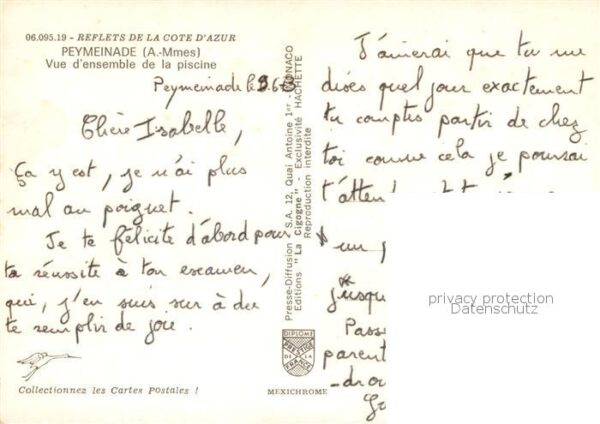 06.095.19 - REFLETS DE LA COTE D'AZUR
PEYMEINADE (A.-Mmes)
Vue d'ensemble de la piscine
Peymeinade le
Chère Isabelle,
Ça y est, je n'ai plus
mal au poignet.
Je te félicite d'abord pour
ta réussite à ton examen,
qui, j'en suis sur à du
te remplir de joie.
Collectionnez les Cartes Postales !
Presse-Diffusion S.A. 12, Quai Antoine 1er - MONACO
Editions "La Cigogne" - Exclusivité HACHETTE
Reproduction interdite
DIPLOME
PRESTIGE
DE LA
FRANCE
MEXICHROME
J'aimerai que tu me
dises quel jour exactement
tu comptes partir de chez
toi comme cela je pourrai
t'attend
un
jusqu
Passe
parent
privacy protection
Datenschutz